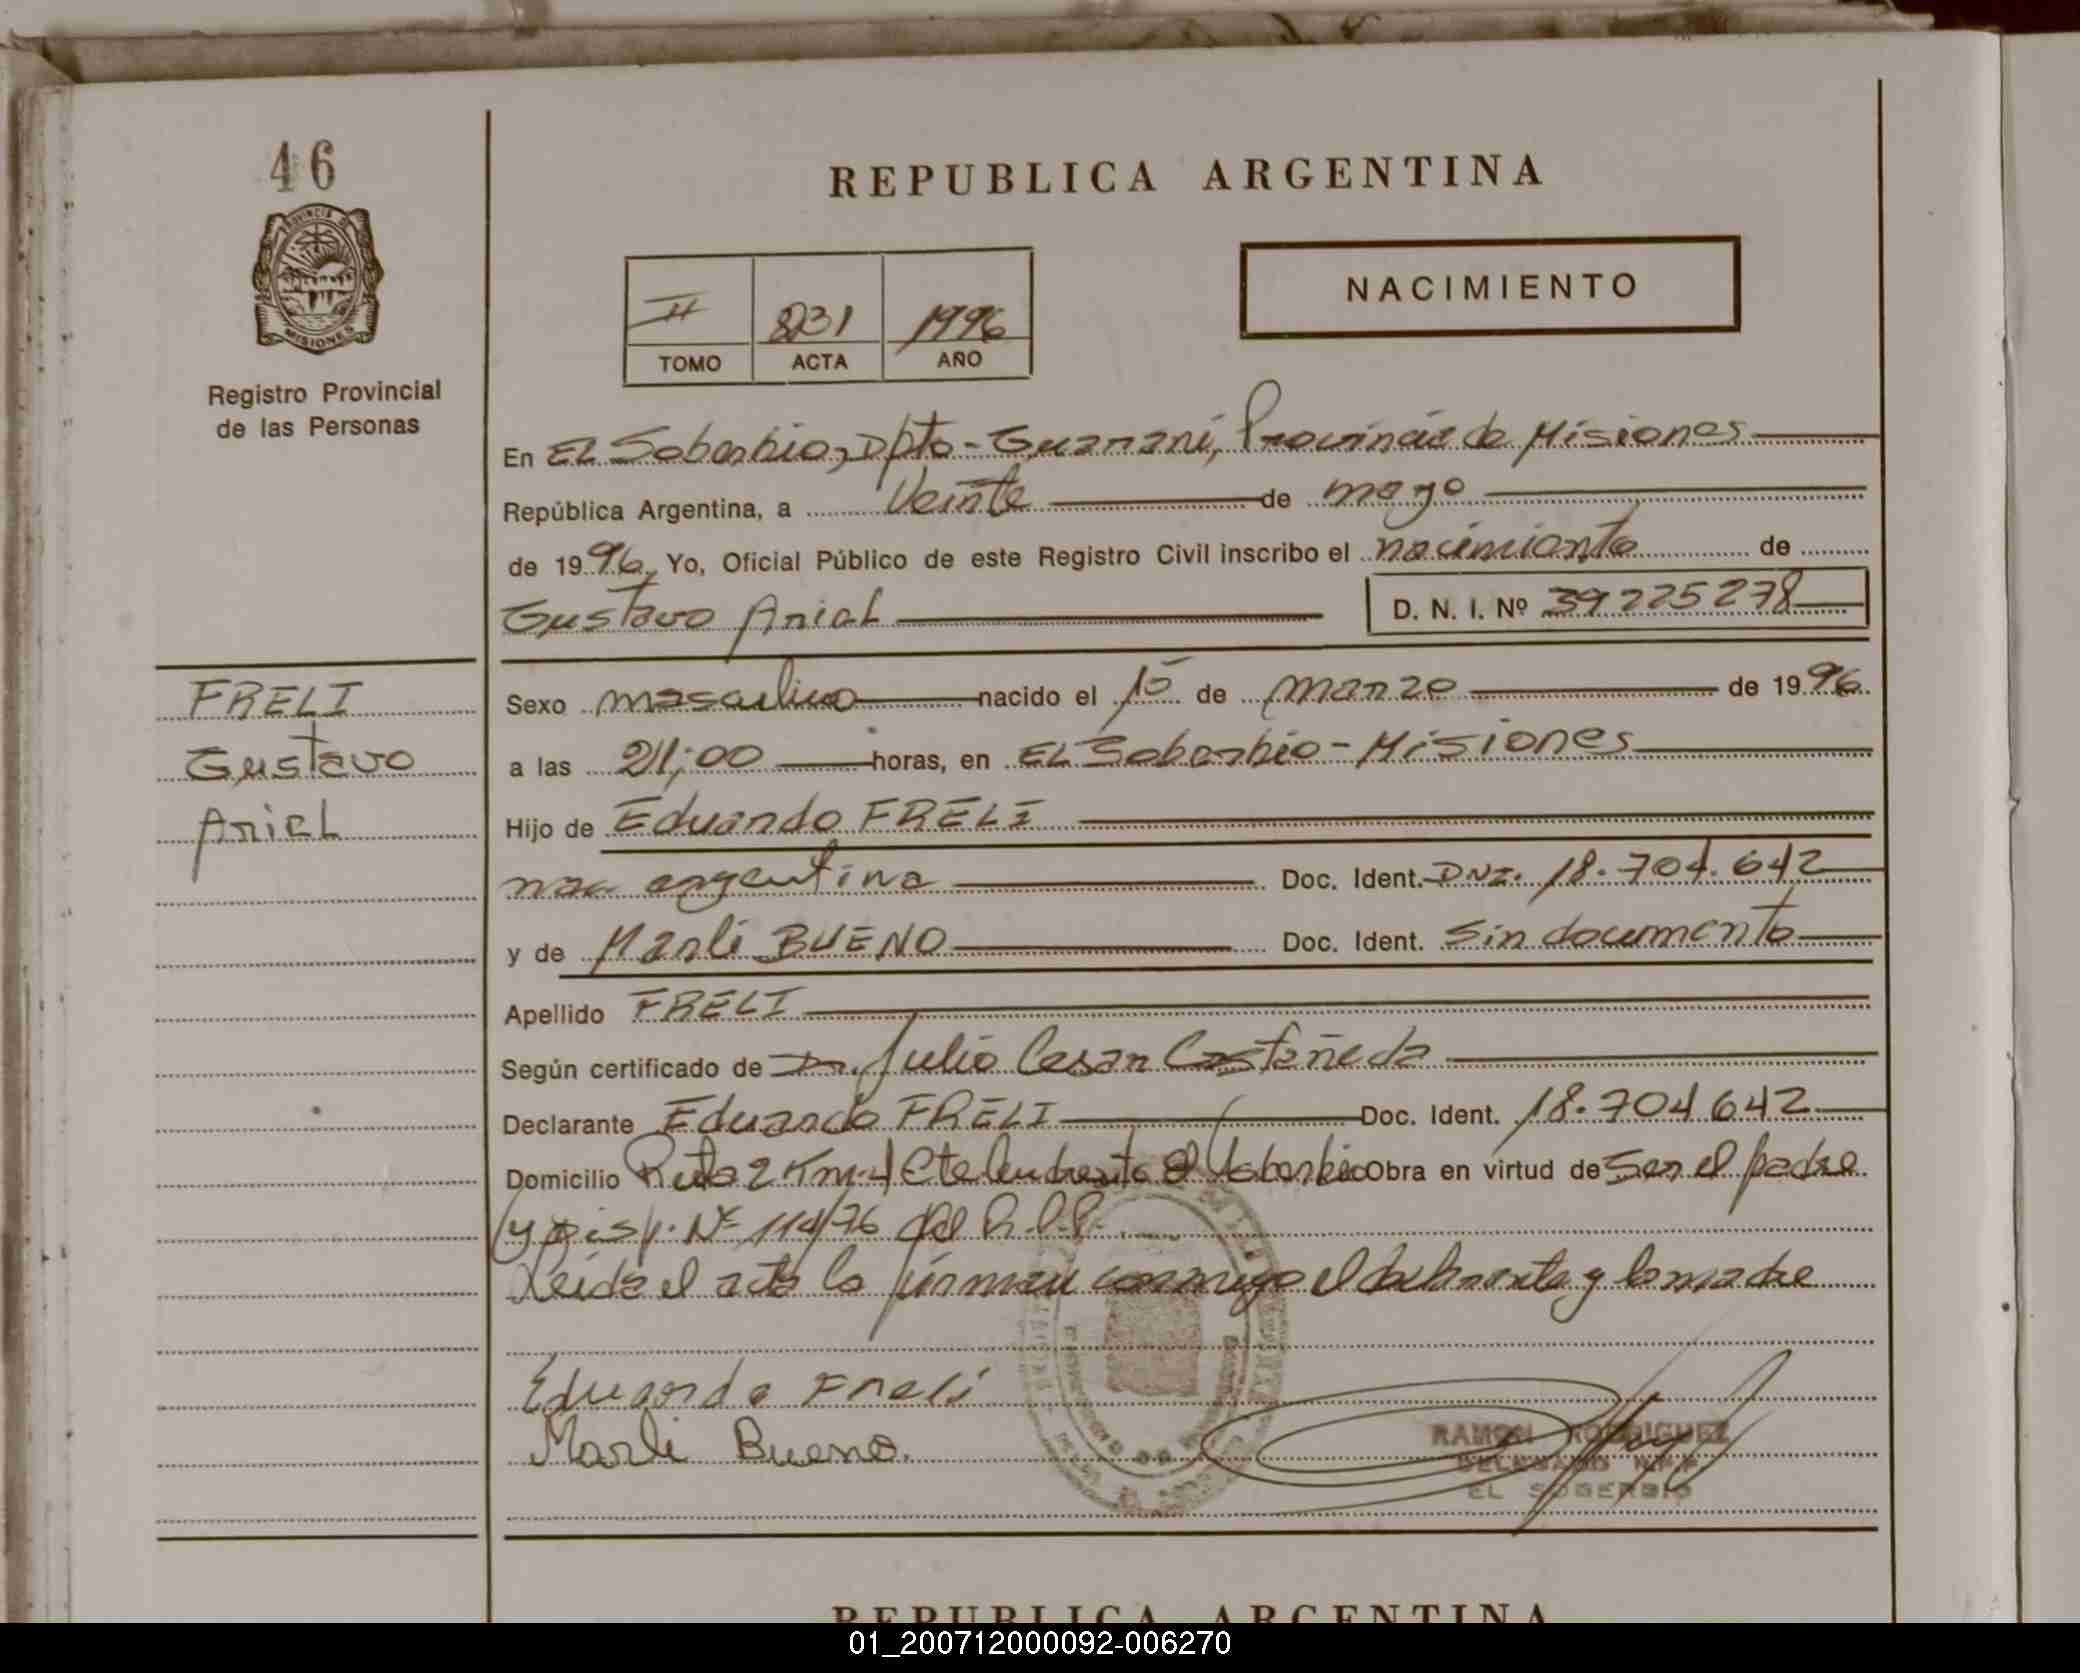 46
PROVINCIA DE
MISIONES
Registro Provincial
de las Personas
REPUBLICA ARGENTINA
NACIMIENTO
II 231 1996
TOMO ACTA AÑO
En EL Soberbio, Dpto - Guaraní, Provincia de Misiones
República Argentina, a Veinte de mayo
de 1996, Yo, Oficial Público de este Registro Civil inscribo el nacimiento de
Gustavo Ariel D. N. I. Nº 39225278
FRELI
Gustavo
Ariel
Sexo masculino nacido el 15 de marzo de 1996
a las 21;00 horas, en EL Soberbio - Misiones
Hijo de Eduardo FRELI
nac argentina Doc. Ident. DNI. 18.704.642
y de Marli BUENO Doc. Ident. Sin documento
Apellido FRELI
Según certificado de Dr. Julio Cesar Castañeda
Declarante Eduardo FRELI Doc. Ident. 18.704642
Domicilio Ruta 2 Km 4 El Soberbio Obra en virtud de Ser el padre
y Disp. Nº 114/76 del R.P.P.
Leida el acta la firman conmigo el declarante y la madre
Eduardo Freli
Marli Bueno.
RAMON RODRIGUEZ
DELEGADO R.P.P
EL SOBERBIO
REPUBLICA ARGENTINA
01_200712000092-006270